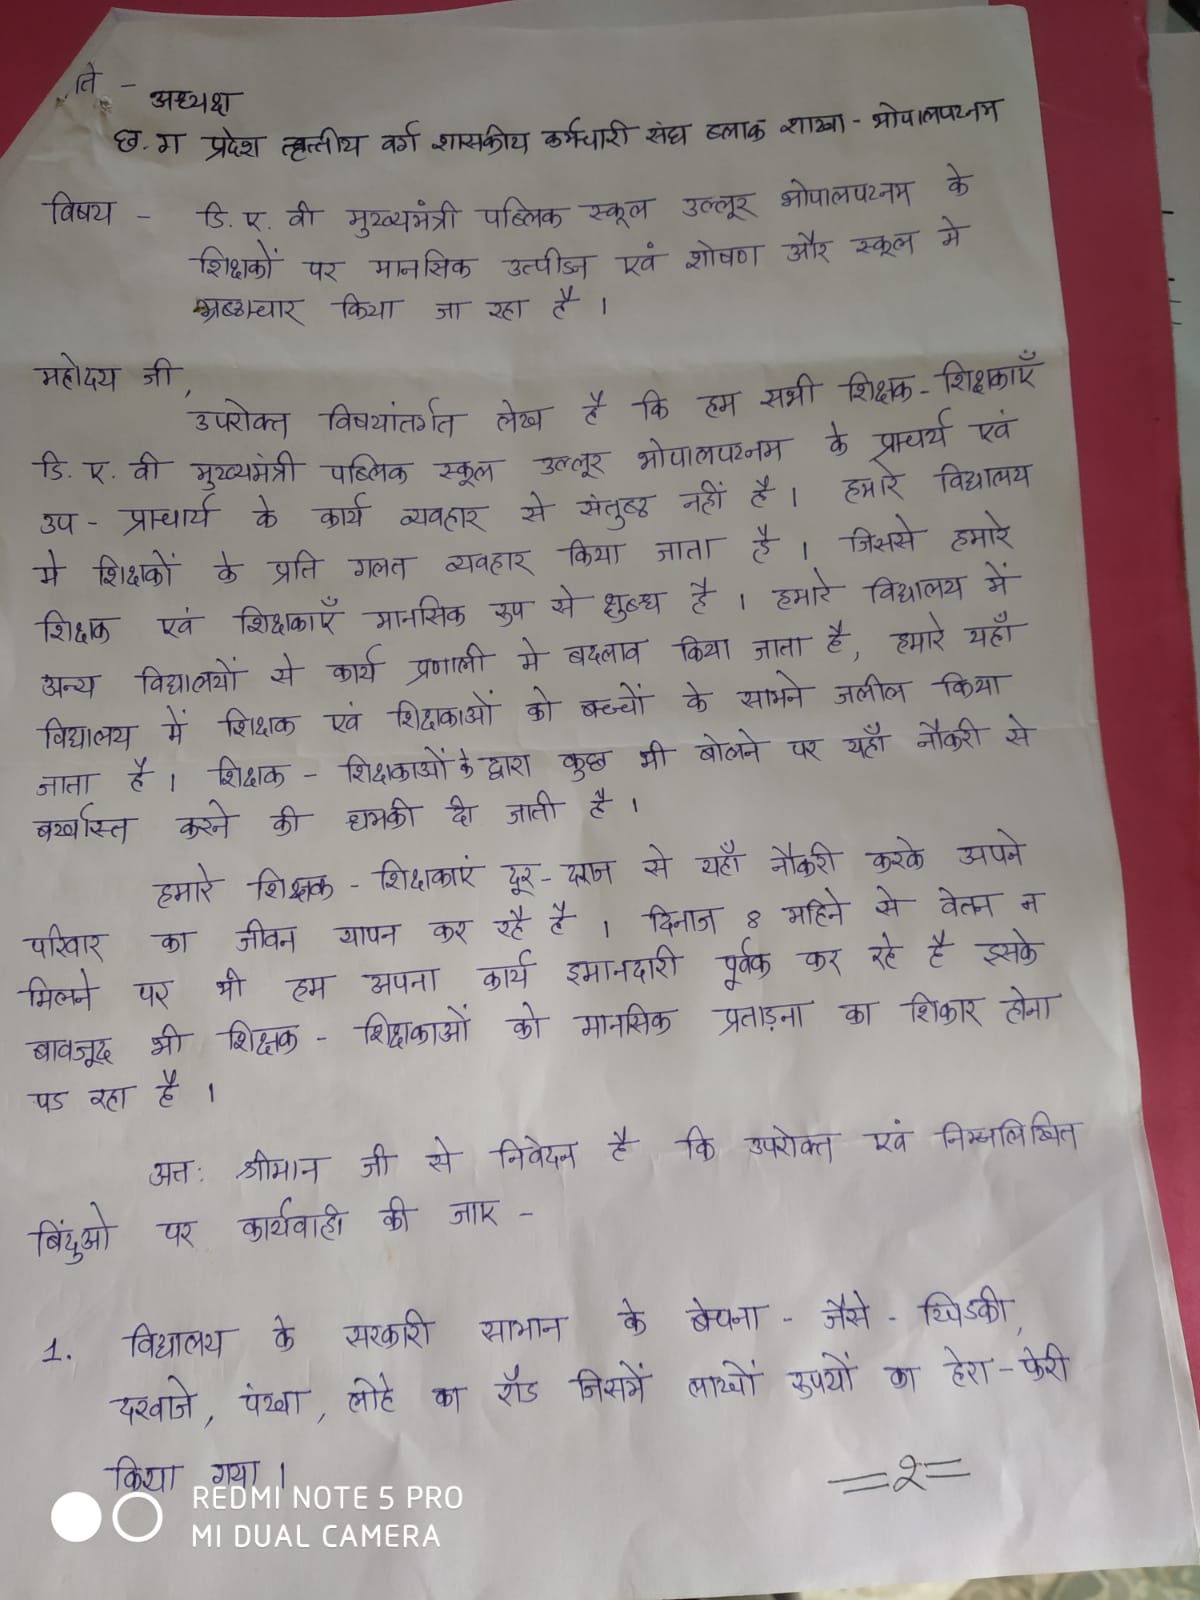 ति -
अध्यक्ष
छ. ग प्रदेश तृत्तीय वर्ग शासकीय कर्मचारी संघ ब्लाक शाखा - भोपालपटनम
विषय - डि. ए. वी मुख्यमंत्री पब्लिक स्कूल उल्लूर भोपालपटनम के
शिक्षकों पर मानसिक उत्पीडन एवं शोषण और स्कूल मे
भ्रष्ठाचार किया जा रहा है ।
महोदय जी,
उपरोक्त विषयांतर्गत लेख है कि हम सभी शिक्षक - शिक्षकाएँ
डि. ए. वी मुख्यमंत्री पब्लिक स्कूल उल्लूर भोपालपटनम के प्राचर्य एवं
उप - प्राचार्य के कार्य व्यवहार से संतुष्ठ नहीं है । हमारे विद्यालय
मे शिक्षकों के प्रति गलत व्यवहार किया जाता है । जिससे हमारे
शिक्षक एवं शिक्षकाएँ मानसिक रुप से क्षुब्ध है । हमारे विद्यालय में
अन्य विद्यालयों से कार्य प्रणाली मे बदलाव किया जाता है, हमारे यहाँ
विद्यालय में शिक्षक एवं शिक्षकाओं को बच्चों के सामने जलील किया
जाता है । शिक्षक - शिक्षकाओं के द्वारा कुछ भी बोलने पर यहाँ नौकरी से
बर्खास्त करने की धमकी दी जाती है ।
हमारे शिक्षक - शिक्षकाएं दूर - दराज से यहाँ नौकरी करके अपने
परिवार का जीवन यापन कर रहै है । दिनाज 8 महिने से वेतन न
मिलने पर भी हम अपना कार्य इमानदारी पूर्वक कर रहे है इसके
बावजूद भी शिक्षक - शिक्षकाओं को मानसिक प्रताड़ना का शिकार होना
पड रहा है ।
अतः श्रीमान जी से निवेदन है कि उपरोक्त एवं निम्नलिखित
बिंदुओ पर कार्यवाही की जाए -
1. विद्यालय के सरकारी सामान के बेचना - जैसे - खिडकी,
दरवाजे, पंखा, लोहे का रॉड जिसमें लाखों रुपयों का हेरा - फेरी
किया गया ।
=२=
REDMI NOTE 5 PRO
MI DUAL CAMERA